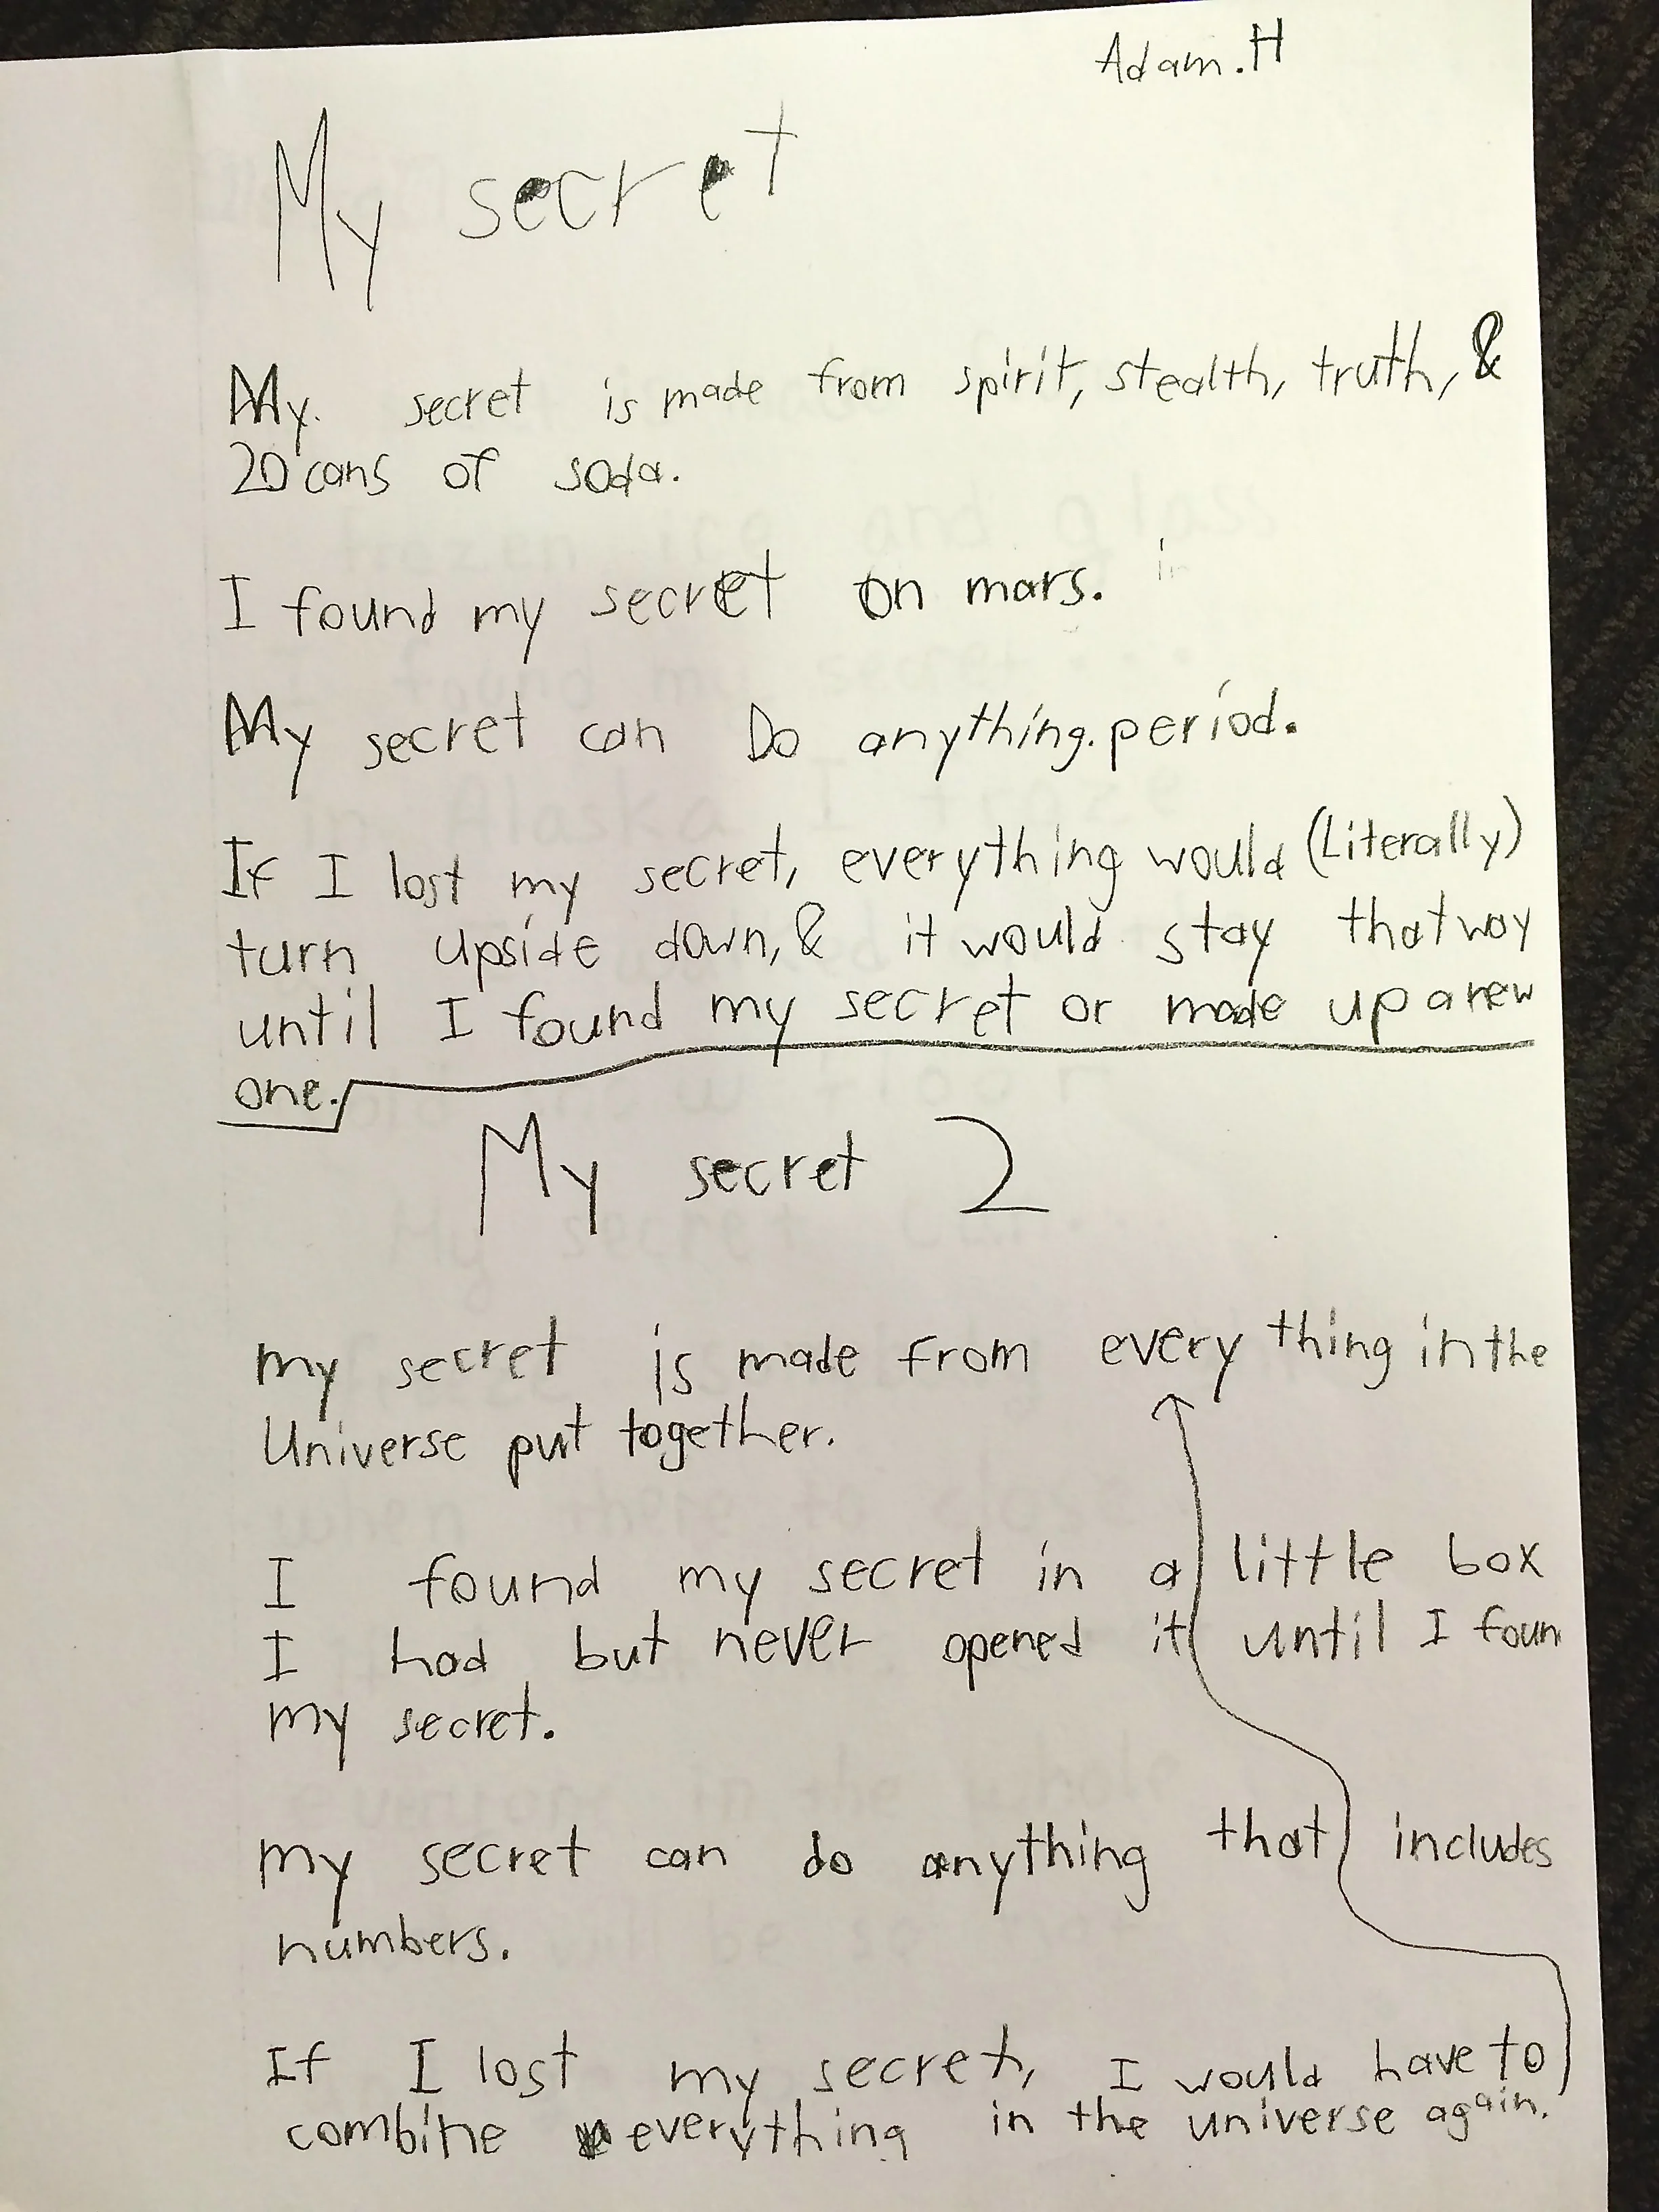 Adam.H
My secret
My. secret is made from spirit, stealth, truth, &
20 cans of soda.
I found my secret on mars. in
My secret can Do anything.period.
If I lost my secret, everything would (Literally)
turn upside down, & it would stay that way
until I found my secret or made up a new
one.
My secret 2
my secret is made from every thing in the
Universe put together.
I found my secret in a little box
I had but never opened it until I foun
my secret.
my secret can do anything that includes
numbers.
If I lost my secret, I would have to
combine everything in the universe again.